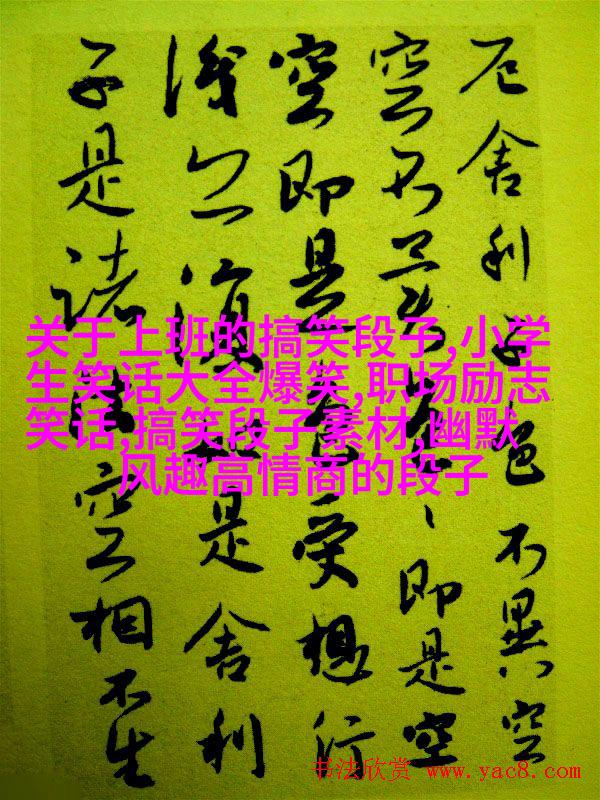 厄舍利子色不異空
空不異色、即是空
空即是色受想行
識亦復如是舍利
子是諸法空相不生
关于上班的搞笑段子,小学
生笑话大全爆笑,职场励志
笑话,搞笑段子素材,幽默
风趣高情商的段子
书法欣赏 www.yac8.com